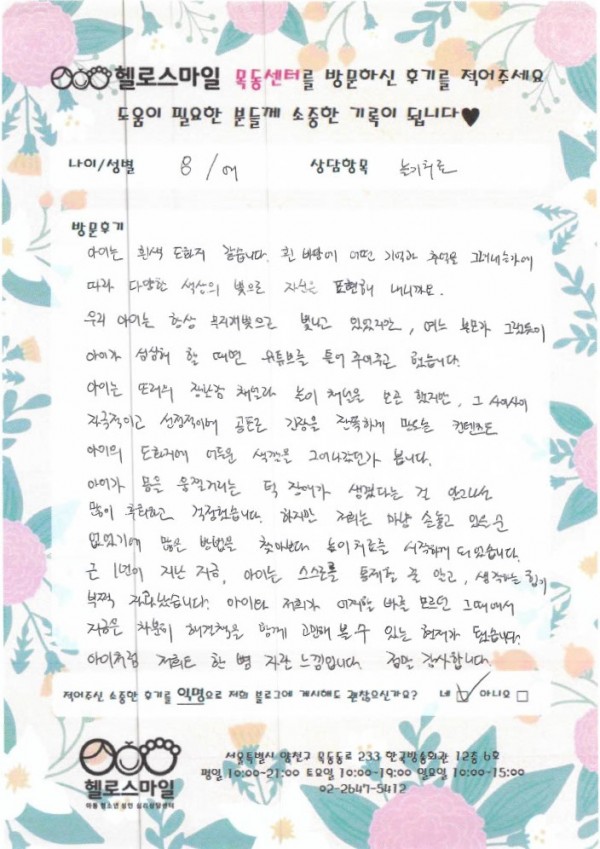 헬로스마일 목동센터를 방문하신 후기를 적어주세요
도움이 필요한 분들께 소중한 기록이 됩니다♥
나이/성별 8 / 여 상담항목 놀이치료
방문후기
아이는 흰색 도화지 같습니다. 흰 바탕에 어떤 기억과 추억을 그려내는가에
따라 다양한 색상의 빛으로 자신을 표현해 내니까요.
우리 아이는 항상 무지개빛으로 빛나고 있었지만, 여느 부모가 그렇듯이
아이가 심심해 할 때면 유튜브를 틀어 주어주곤 했습니다.
아이는 또래의 장난감 채널과 놀이 채널을 보곤 했지만, 그 사이사이
자극적이고 선정적이며 공포로 긴장을 잔뜩하게 만드는 컨텐츠도
아이의 도화지에 어두운 색깔을 그어나갔던가 봅니다.
아이가 몸을 움찔거리는 틱 장애가 생겼다는 걸 안그나는
많이 후회하고 걱정했습니다. 하지만 저희는 마냥 손놓고 있을 순
없었기에 많은 방법을 찾아보다 놀이치료를 시작하게 되었습니다.
근 1년이 지난 지금, 아이는 스스로를 통제할 줄 알고, 생각하는 힘이
부쩍 자라났습니다. 아이와 저희가 어찌할 바를 모르던 그때에서
지금은 차분히 해결책을 함께 고민해 볼 수 있는 현재가 됐습니다.
아이처럼 저희도 한 뼘 자란 느낌입니다. 정말 감사합니다.
적어주신 소중한 후기를 익명으로 저희 블로그에 게시해도 괜찮으신가요? 네 ☑ 아니오 □
헬로스마일
아동 청소년 성인 심리상담센터
서울특별시 양천구 목동동로 233 한국방송회관 12층 6호
평일 10:00-21:00 토요일 10:00-19:00 일요일 10:00-15:00
02-2647-5412